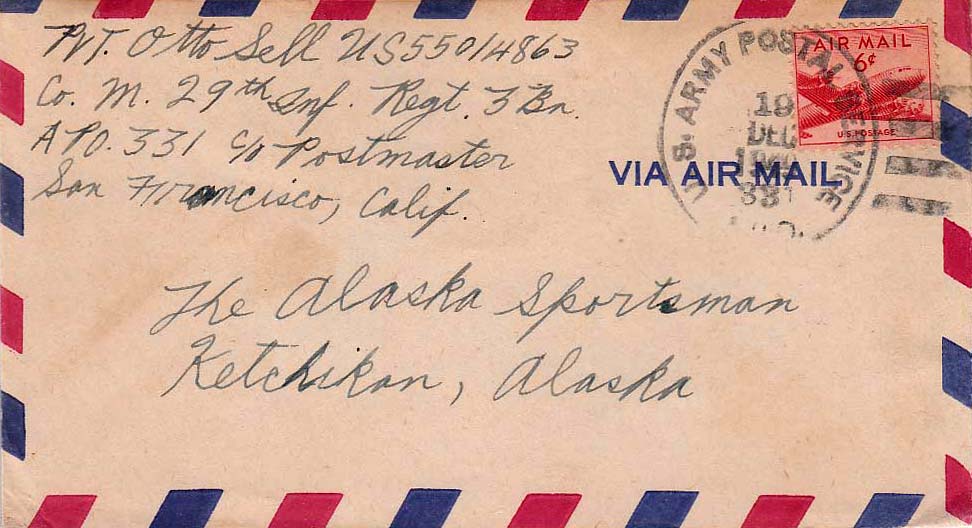 Pvt. Otto Sell US55014863
Co. M. 29th Inf. Regt. 3 Bn.
APO. 331 c/o Postmaster
San Francisco, Calif.
U.S. ARMY POSTAL SERVICE
19
DEC
331
A.P.O.
AIR MAIL
6¢
U.S. POSTAGE
VIA AIR MAIL
The Alaska Sportsman
Ketchikan, Alaska